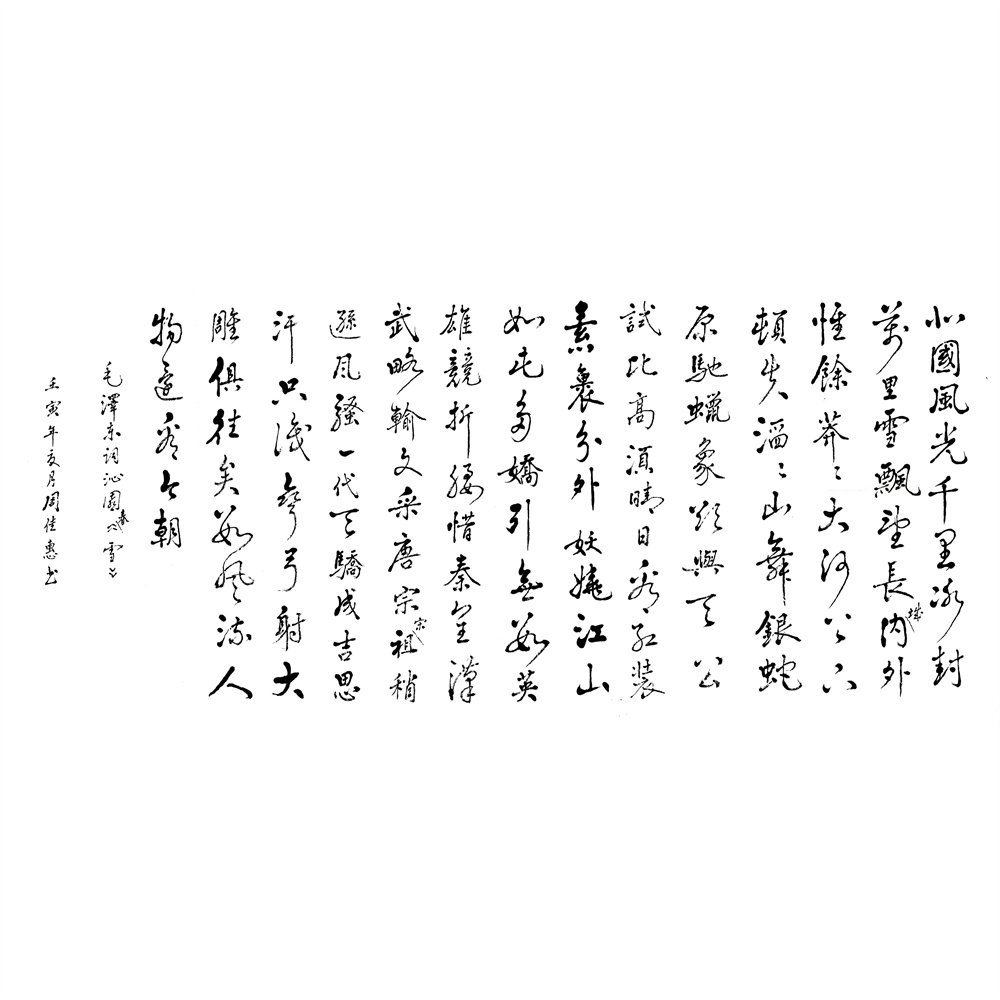 北國風光千里冰封
萬里雪飄望長城內外
惟餘莽〻大河上下
頓失滔〻山舞銀蛇
原馳蠟象欲與天公
試比高須晴日看紅裝
素裹分外妖嬈江山
如此多嬌引無數英
雄競折腰惜秦皇漢
武略輸文采唐宗宋祖稍
遜風騷一代天驕成吉思
汗只識彎弓射大
雕俱往矣數風流人
物還看今朝
毛澤東詞沁園春《雪》
壬寅年亥月周佳惠书